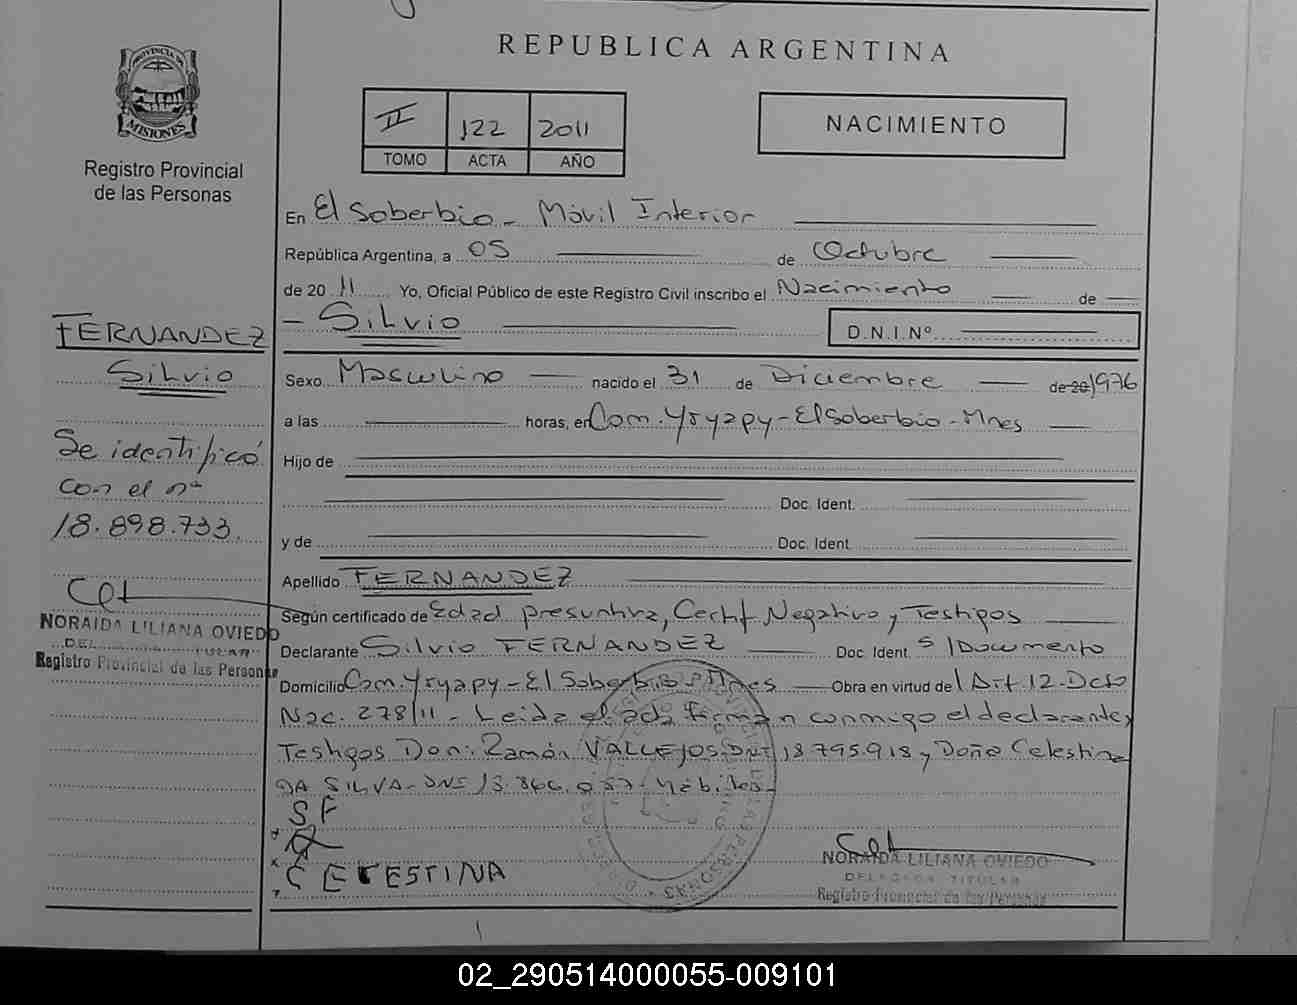 REPUBLICA ARGENTINA
PROVINCIA DE
MISIONES
Registro Provincial
de las Personas
II 122 2011
TOMO ACTA AÑO
NACIMIENTO
En El Soberbio - Móvil Interior
República Argentina, a 05 de Octubre
de 2011 Yo, Oficial Público de este Registro Civil inscribo el Nacimiento de
- Silvio D.N.I.Nº
FERNANDEZ
Silvio
Se identificó
con el nº
18.898.733.
NORAIDA LILIANA OVIEDO
DEL TITULAR
Registro Provincial de las Personas
Sexo Masculino nacido el 31 de Diciembre de 20 1976
a las horas, en Com. Yryapy - El Soberbio - Mnes
Hijo de
Doc. Ident.
y de Doc. Ident.
Apellido FERNANDEZ
Según certificado de Edad presuntiva, Certif Negativo y Testigos
Declarante Silvio FERNANDEZ Doc. Ident. S/Documento
Domicilio Com. Yryapy - El Soberbio - Mnes Obra en virtud del Art 12 - Dcto
Nac. 278/11 - Leida el acta firman conmigo el declarante,
Testigos Don: Ramón VALLEJOS DNI 18.795.918 y Doña Celestina
DA SILVA - DNI 13.866.057 - Hábiles -
SF
CELESTINA
NORAIDA LILIANA OVIEDO
DELEGADA TITULAR
Registro Provincial de las Personas
02_290514000055-009101